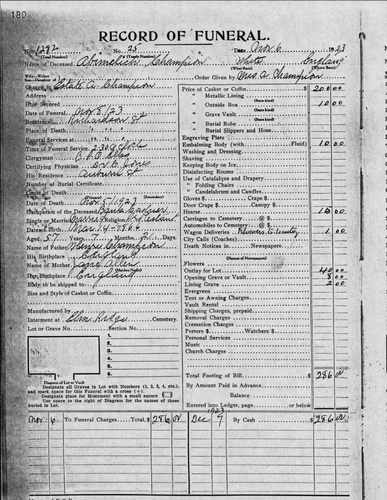 180
RECORD OF FUNERAL.
No. 25 Date Nov. 6 1923
Name of Deceased Champion White England
Charge to Estate A. Champion Order Given by Mrs. A Champion
Address Price of Casket or Coffin $ 200 00
How Secured " Metallic Lining
Date of Funeral Nov 8/23 " Outside Box 10 00
Residence Richardson St " Grave Vault
Place of Death " Burial Robe
" Burial Slippers and Hose
Engraving Plate
Time of Funeral Service 2:30 o'clock Embalming Body (with Fluid) 10 00
Clergyman Washing and Dressing
Shaving
Certifying Physician Keeping Body on Ice
His Residence Auburn St Disinfecting Rooms
Number of Burial Certificate Use of Catafalque and Drapery
Cause of Death " Folding Chairs
" Candelabrum and Candles
Date of Death Nov 5 1923 Gloves $ Crape $
Occupation of the Deceased Door Crape $ Canopy $
Single or Married Religion Hearse 10 00
Date of Birth Mar 14 1866 Carriages to Cemetery @ $
Aged 57 Years 7 Months Days Automobiles to Cemetery @ $
Name of Father Champion Wagon Deliveries 1 00
His Birthplace England City Calls (Coaches)
Name of Mother Jane Allen Death Notices in Newspapers
Her Birthplace England Flowers
Body to be Shipped to Outlay for Lot 40 00
Size and Style of Casket or Coffin Opening Grave or Vault 8 00
Lining Grave 2 00
Evergreen
Tent or Awning
Vault Rental
Manufactured by Shipping Charges, prepaid
Interment at Elm Ridge Cemetery Removal Charges
Lot or Grave No. Section No. Cremation Charges
Porters $ Watchers $
Personal Services
Music
Church Charges
Diagram of Lot or Vault
Designate all Graves in Lot with Numbers (1, 2, 3, 4, etc.), Total Footing of Bill $ 286 00
and mark space for this Funeral with a cross (+). By Amount Paid in Advance
Designate place for Monument with a small square Balance
Use space to the right of Diagram for the names of those buried in Lot. Entered into Ledger, page or below
1923
Nov 6 To Funeral Charges Total $ 286 00 Dec 9 By Cash $ 286 00